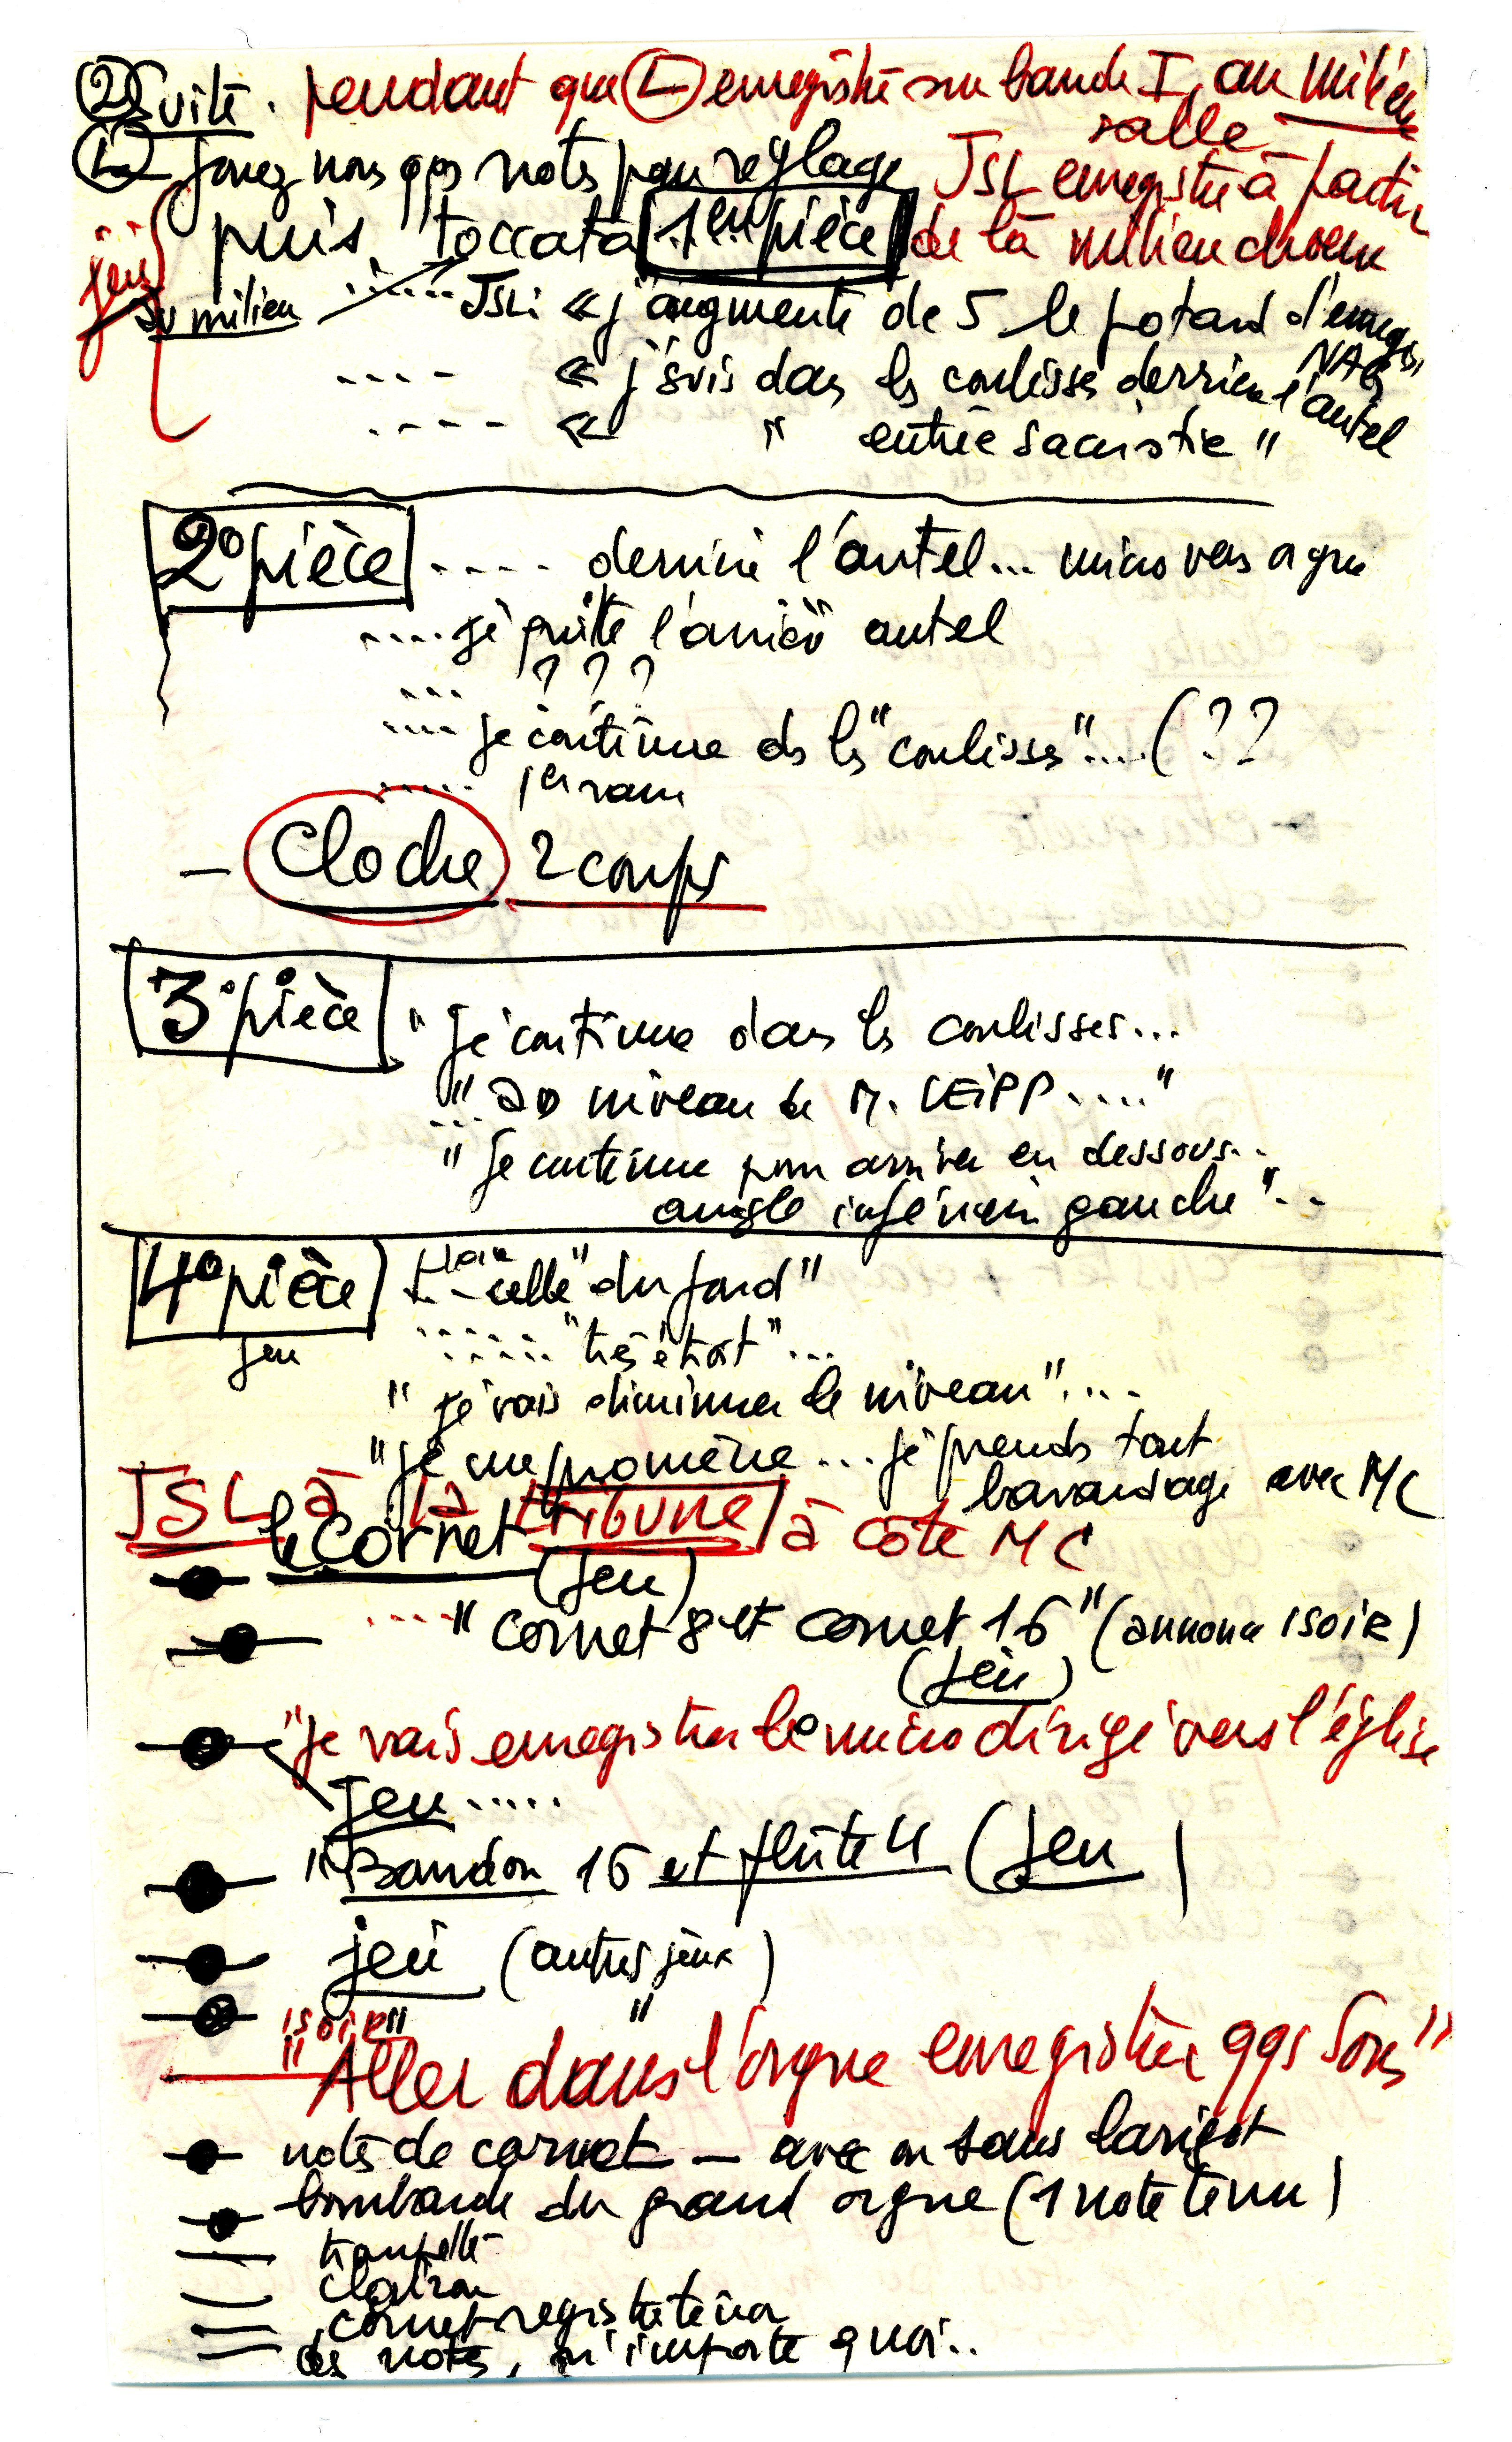 ② Suite. pendant que (L) enregistre sur bande I, au milieu
salle
(L) jouez nous qqs notes pour réglage JSL enregistre à partir
puis toccata 1ère pièce de là milieu choeur
jeu
du milieu ...... JSL: « j'augmente de 5 le potard d'enregs,
NAG
.... « j'suis dans les coulisses derrière l'autel
.... « " entrée sacristie "
2° pièce .... derrière l'autel... micro vers orgue
.... je quitte l'arrière autel
... ? ? ?
.... je continue ds les "coulisses".... (??
.....
– Cloche 2 coups
3° pièce " je continue dans les coulisses...
" au niveau de M. LEIPP...."
... " je continue pour arriver en dessous...
angle inférieur gauche "...
4° pièce "celle du fond"
jeu ..... "très étroit"...
" je vais diminuer le niveau"....
" je me promène... je prends tout
bavardage avec MC
JSL à la tribune à côté MC
le cornet (jeu)
.... " cornet 8 et cornet 16 " (annonce ISOIR)
(jeu)
"je vais enregistrer le micro dirigé vers l'église
jeu.....
" Bourdon 16 et flûte 4 (jeu)
jeu (autres jeux)
ISOIR "
" Aller dans l'orgue enregistrer qqs sons"
notes de cornet – avec ou sans larigot
bombarde du grand orgue (1 note tenue)
trompette
clairon
cornet
des notes, n'importe quoi..